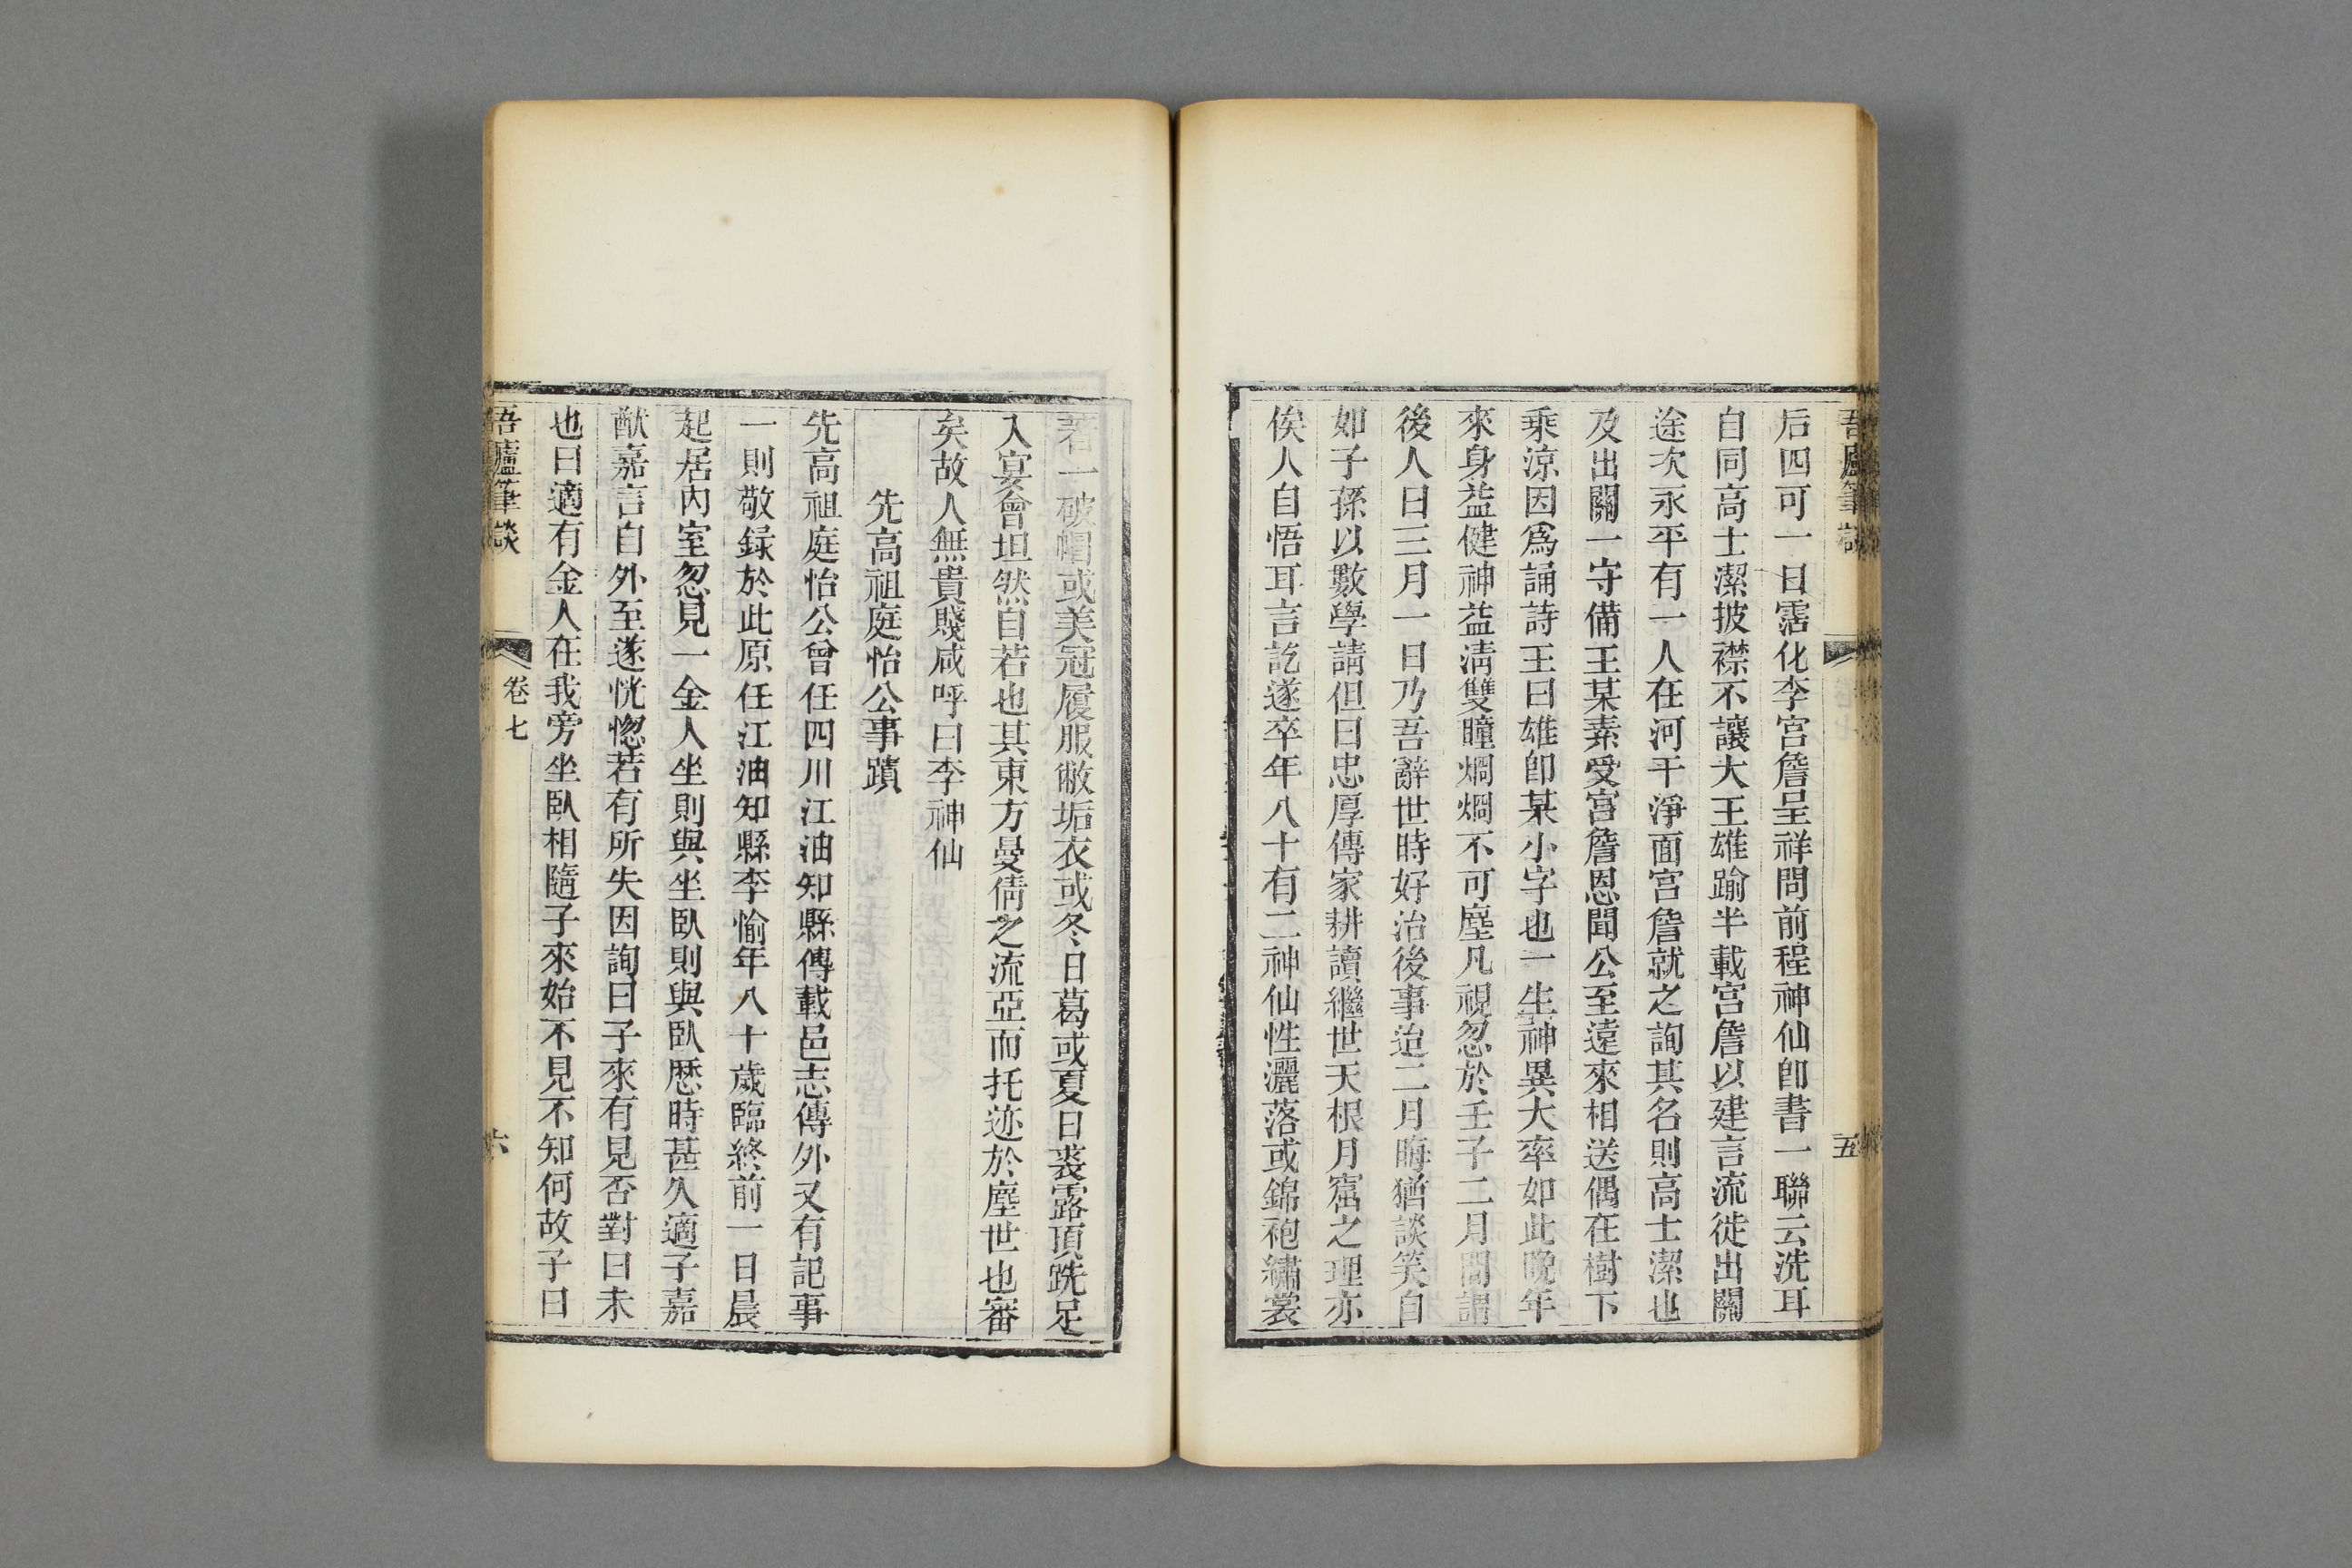 吾廬筆談
五
后四可一日霑化李宮詹呈祥問前程神仙卽書一聯云洗耳
自同高士潔披襟不讓大王雄踰半載宮詹以建言流徙出關
途次永平有一人在河干淨面宮詹就之詢其名則高士潔也
及出關一守備王某素受宮詹恩聞公至遠來相送偶在樹下
乘涼因爲誦詩王曰雄卽某小字也一生神異大率如此晚年
來身益健神益淸雙瞳烱烱不可塵凡視忽於壬子二月間謂
後人曰三月一日乃吾辭世時好治後事迨二月晦猶談笑自
如子孫以數學請但曰忠厚傳家耕讀繼世天根月窟之理亦
俟人自悟耳言訖遂卒年八十有二神仙性灑落或錦袍繡裳
著一破帽或美冠履服敝垢衣或冬日葛或夏日裘露頂跣足
入宴會坦然自若也其東方曼倩之流亞而托迹於塵世也審
矣故人無貴賤咸呼曰李神仙
先高祖庭怡公事蹟
先高祖庭怡公曾任四川江油知縣傳載邑志傳外又有記事
一則敬録於此原任江油知縣李愉年八十歲臨終前一日晨
起居內室忽見一金人坐則與坐臥則與臥歷時甚久適子嘉
猷嘉言自外至遂恍惚若有所失因詢曰子來有見否對曰未
也曰適有金人在我旁坐臥相隨子來始不見不知何故子曰
吾廬筆談
卷七
六